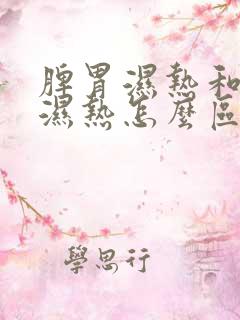 脾胃濕熱和
濕熱怎麼區
學思行